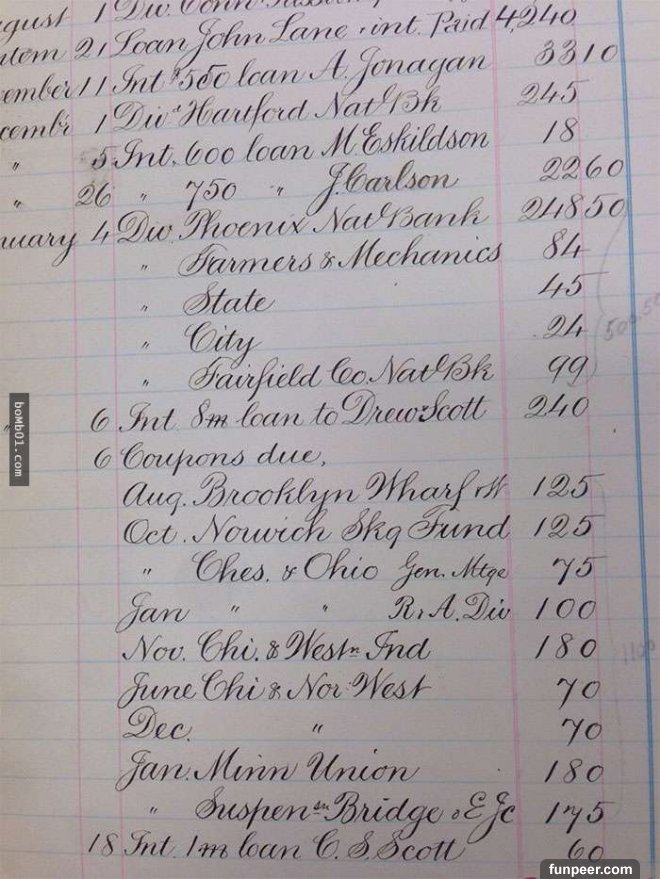 ugust 1 Div. Conn
tem 21 Loan John Lane & int. Paid 4,240
ember 11 Int $550 loan A. Jonagan 33 10
cembr 1 Div Hartford Natl Bk 245
" 5 Int. 600 loan M. Eskildson 18
" 26 " 750 " J. Carlson 22 60
nuary 4 Div. Phoenix Natl Bank 248 50
" Farmers & Mechanics 84
" State 45
" City 24
" Fairfield Co. Natl Bk 99
" 6 Int. 8m loan to Drew Scott 240
6 Coupons due,
Aug. Brooklyn Wharf & W 125
Oct. Norwich Skg Fund 125
" Ches. & Ohio Gen. Mtge 75
Jan " " R & A. Div 100
Nov. Chi. & Westn Ind 180
June Chi & Nor West 70
Dec. " 70
Jan. Minn Union 180
" Suspensn Bridge & E Jc 175
18 Int. 1m loan C. S. Scott 60
boMb01.com
funpeer.com